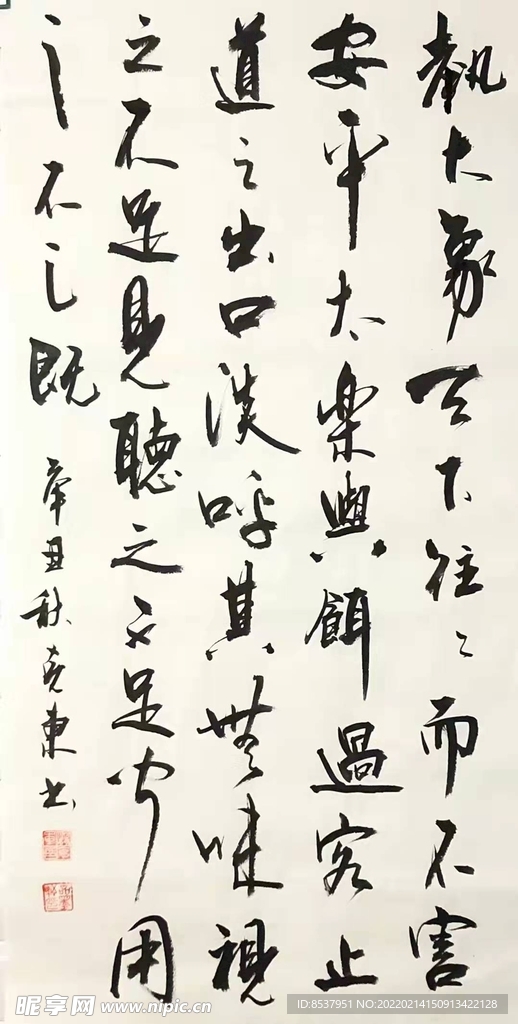 執大象天下往々而不害
安平太樂與餌過客止
道之出口淡呼其無味視
之不足見聽之不足聞用
之不之既
辛丑秋克東书
昵享网 www.nipic.cn
ID:8537951 NO:20220214150913422128